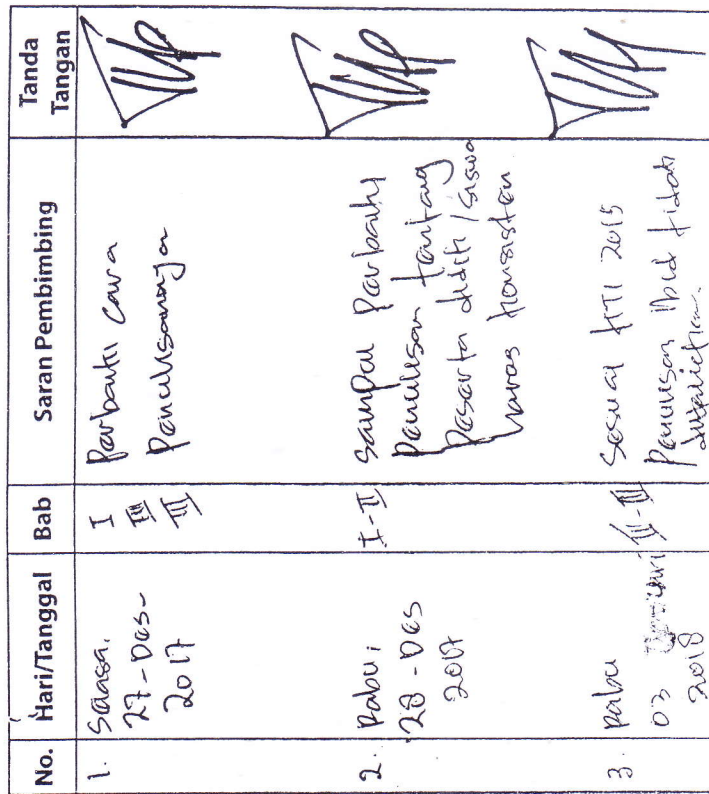 No. Hari/Tanggal Bab Saran Pembimbing Tanda Tangan
1. Selasa,
27-Des-
2017
I
III
III
Perbaiki cara
Penulisannya
2. Rabu,
28-Des
2017
I-II
Sampul Perbaiki
Penulisan tentang
Peserta didik/siswa
harus konsisten
3. Rabu
03
2018
II-III
Sesuai KTI 2015
Penulisan Ibid tidak